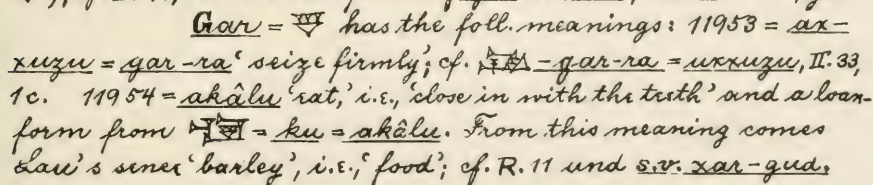 Gar = 𒐼 has the foll. meanings: 11953 = ax-
xuzu = gar-ra ‘seize firmly’; cf. -gar-ra = uxxuzu, II. 33,
1c. 11954 = akâlu ‘eat,’ i.e., ‘close in with the teeth’ and a loan-
form from = ku = akâlu. From this meaning comes
Lau's sense ‘barley’, i.e., ‘food’; cf. R. 11 und s.v. xar-gud.